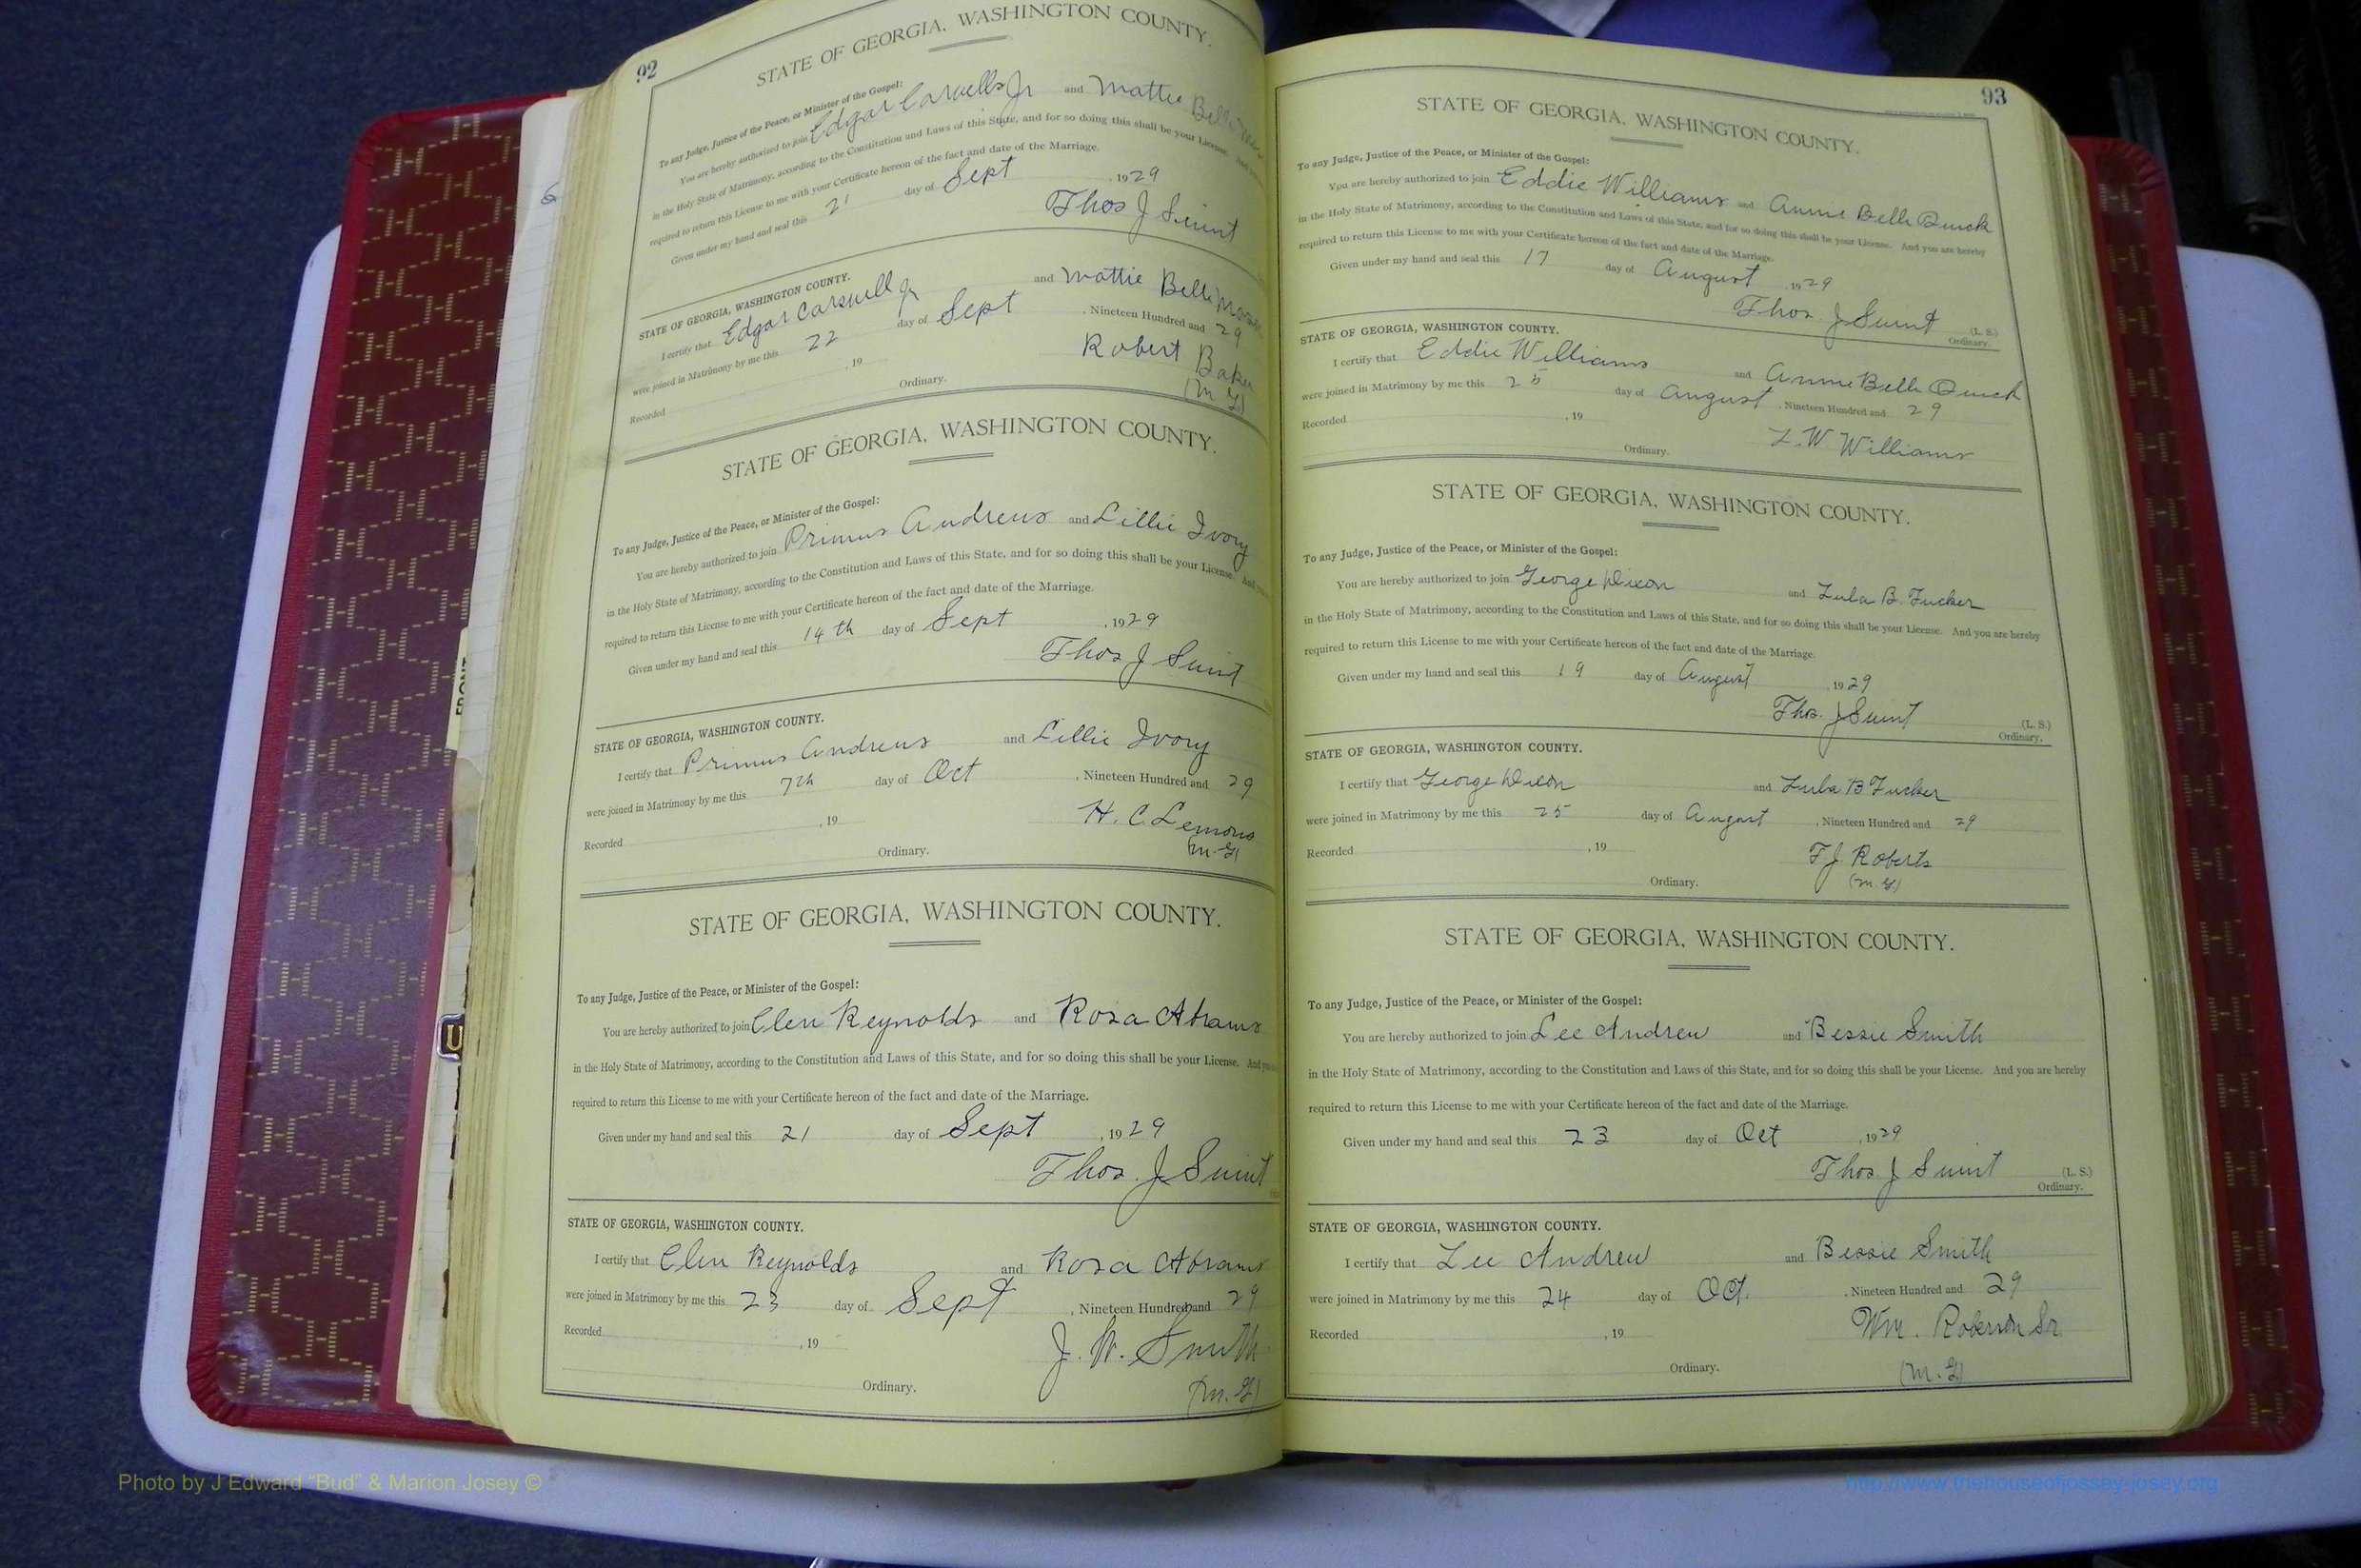 92
STATE OF GEORGIA, WASHINGTON COUNTY.
To any Judge, Justice of the Peace, or Minister of the Gospel:
You are hereby authorized to join Edgar Carswell Jr and Mattie Belle
in the Holy State of Matrimony, according to the Constitution and Laws of this State, and for so doing this shall be your License. And you
required to return this License to me with your Certificate hereon of the fact and date of the Marriage.
Given under my hand and seal this 21 day of Sept , 1929
Thos J Swint
STATE OF GEORGIA, WASHINGTON COUNTY.
I certify that Edgar Carswell Jr and Mattie Belle
were joined in Matrimony by me this 22 day of Sept , Nineteen Hundred and 29
Robert Baker
Recorded , 19
(M G)
Ordinary.
STATE OF GEORGIA, WASHINGTON COUNTY.
To any Judge, Justice of the Peace, or Minister of the Gospel:
You are hereby authorized to join Primus Andrews and Lillie Ivory
in the Holy State of Matrimony, according to the Constitution and Laws of this State, and for so doing this shall be your License. And
required to return this License to me with your Certificate hereon of the fact and date of the Marriage.
Given under my hand and seal this 14th day of Sept , 1929
Thos J Swint
STATE OF GEORGIA, WASHINGTON COUNTY.
I certify that Primus Andrews and Lillie Ivory
were joined in Matrimony by me this 7th day of Oct , Nineteen Hundred and 29
H. C. Lemons
Recorded , 19
(M.G)
Ordinary.
STATE OF GEORGIA, WASHINGTON COUNTY.
To any Judge, Justice of the Peace, or Minister of the Gospel:
You are hereby authorized to join Clen Reynolds and Rosa Abrams
in the Holy State of Matrimony, according to the Constitution and Laws of this State, and for so doing this shall be your License. And you
required to return this License to me with your Certificate hereon of the fact and date of the Marriage.
Given under my hand and seal this 21 day of Sept , 1929
Thos. J Swint
STATE OF GEORGIA, WASHINGTON COUNTY.
I certify that Clen Reynolds and Rosa Abrams
were joined in Matrimony by me this 23 day of Sept , Nineteen Hundred and 29
J. W. Smith
Recorded , 19
(M.G)
Ordinary.
93
STATE OF GEORGIA, WASHINGTON COUNTY.
To any Judge, Justice of the Peace, or Minister of the Gospel:
You are hereby authorized to join Eddie Williams and Annie Belle Quick
in the Holy State of Matrimony, according to the Constitution and Laws of this State, and for so doing this shall be your License. And you are hereby
required to return this License to me with your Certificate hereon of the fact and date of the Marriage.
Given under my hand and seal this 17 day of August , 1929
Thos. J Swint (L. S.)
Ordinary.
STATE OF GEORGIA, WASHINGTON COUNTY.
I certify that Eddie Williams and Annie Belle Quick
were joined in Matrimony by me this 25 day of August , Nineteen Hundred and 29
Recorded , 19
L. W. Williams
Ordinary.
STATE OF GEORGIA, WASHINGTON COUNTY.
To any Judge, Justice of the Peace, or Minister of the Gospel:
You are hereby authorized to join George Dixon and Lula B. Tucker
in the Holy State of Matrimony, according to the Constitution and Laws of this State, and for so doing this shall be your License. And you are hereby
required to return this License to me with your Certificate hereon of the fact and date of the Marriage.
Given under my hand and seal this 19 day of August , 1929
Thos. J Swint (L. S.)
Ordinary.
STATE OF GEORGIA, WASHINGTON COUNTY.
I certify that George Dixon and Lula B Tucker
were joined in Matrimony by me this 25 day of August , Nineteen Hundred and 29
Recorded , 19
T J Roberts
(M.G)
Ordinary.
STATE OF GEORGIA, WASHINGTON COUNTY.
To any Judge, Justice of the Peace, or Minister of the Gospel:
You are hereby authorized to join Lee Andrew and Bessie Smith
in the Holy State of Matrimony, according to the Constitution and Laws of this State, and for so doing this shall be your License. And you are hereby
required to return this License to me with your Certificate hereon of the fact and date of the Marriage.
Given under my hand and seal this 23 day of Oct , 1929
Thos. J Swint (L. S.)
Ordinary.
STATE OF GEORGIA, WASHINGTON COUNTY.
I certify that Lee Andrew and Bessie Smith
were joined in Matrimony by me this 24 day of Oct. , Nineteen Hundred and 29
Recorded , 19
Wm. Roberson Sr.
Ordinary.
(M.G)
Photo by J Edward “Bud” & Marion Josey ©
http://www.thehouseofjossey-josey.org